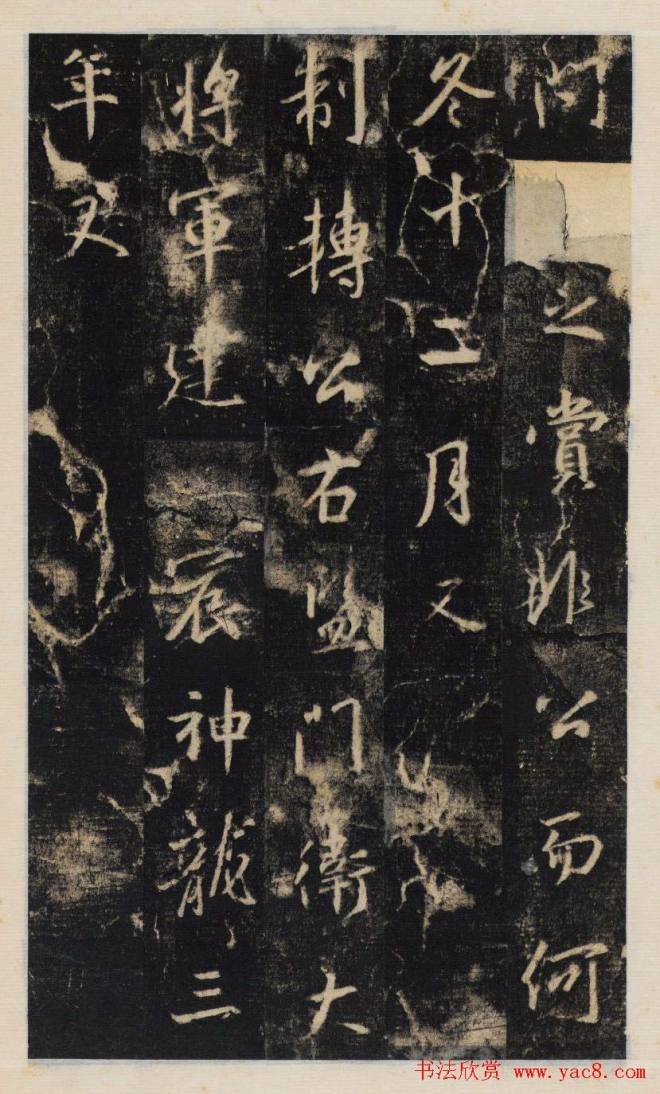 問之賞非公而何
冬十二月又
制轉公右監門衛大
將軍建宸神龍三
年又
书法欣赏 www.yac8.com